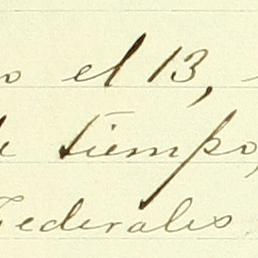 o el 13,
tiempo,
Federales